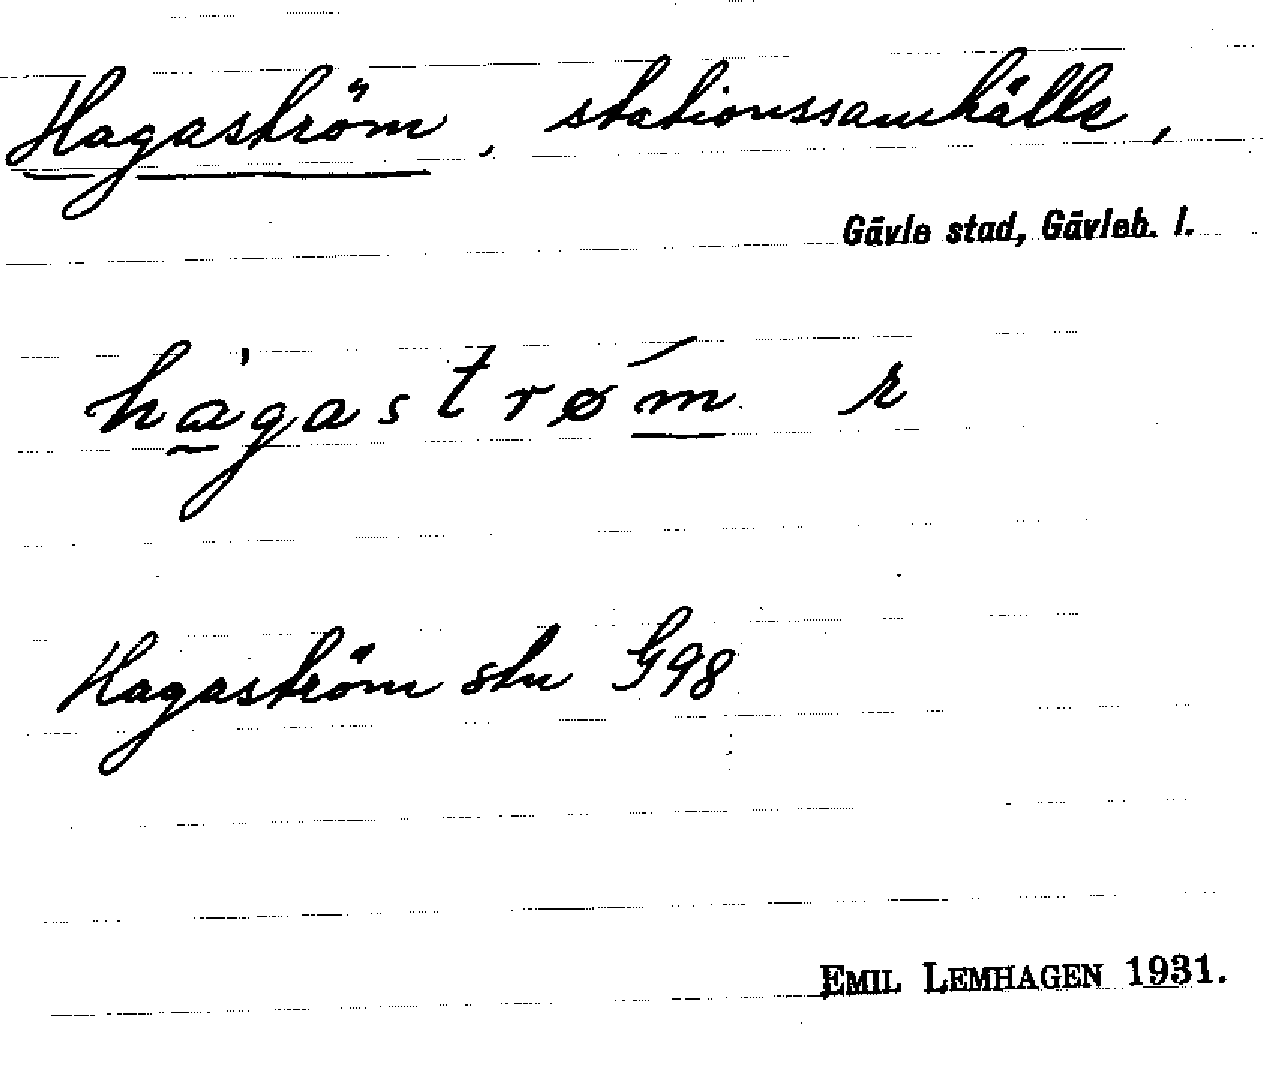 Hagaström, stationssamhälle,
Gävle stad, Gävleb. l.
hagastrøm r
Hagaström stn G98
EMIL LEMHAGEN 1931.